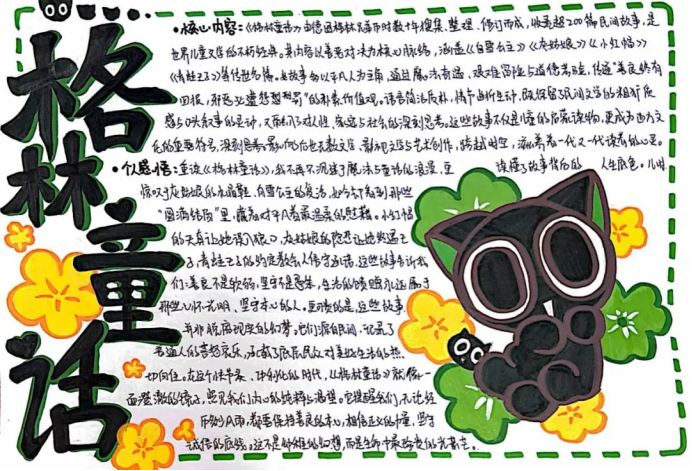 格林童话
核心内容:《格林童话》由德国格林兄弟历时数十年搜集、整理、修订而成,收录超200篇民间故事,是
世界儿童文学的不朽经典。其内容以善恶对决为核心脉络,涵盖《白雪公主》《灰姑娘》《小红帽》
《青蛙王子》等传世名篇。故事多以平凡人为主角,通过魔法奇遇、艰难冒险与道德考验,传递“善良终有
回报,邪恶必遭惩罚”的朴素价值观。语言简洁质朴,情节曲折生动,既保留了民间文学的粗犷质
感与口头叙事的灵动,又融入了对人性、家庭与社会的深刻思考。这些故事不仅是儿童的启蒙读物,更成为西方文
化的重要符号,深刻影响后世文学、影视与艺术创作,跨越时空,滋养着一代又一代读者的心灵。
个人感悟:重读《格林童话》,我不再只沉迷于魔法与童话的浪漫,更 读懂了故事背后的 人生底色。儿时
惊叹于灰姑娘的水晶鞋、白雪公主的复活,如今却看到那些
“圆满结局”里,藏着对平凡者最温柔的慰藉。小红帽
的天真让她误入狼口,灰姑娘的隐忍让她
子,青蛙王子的约定教会人信守承诺。这些故事告诉我
们:善良不是软弱,坚守不是愚笨,生活的馈赠永远属于
那些心怀光明、坚守本心的人。更可贵的是,这些故事
并非脱离现实的幻梦。它们源自民间,记录了
普通人的喜怒哀乐,承载了底层民众对美好生活的热
切向往。在这个快节奏、功利化的时代,《格林童话》就像一
面澄澈的镜子,照见我们内心的纯粹与渴望。它提醒我们,无论经
历多少风雨,都要保持善良的本心,相信正义的力量,坚守
诚信的底线。这不是幼稚的幻想,而是生命中最珍贵的光芒。